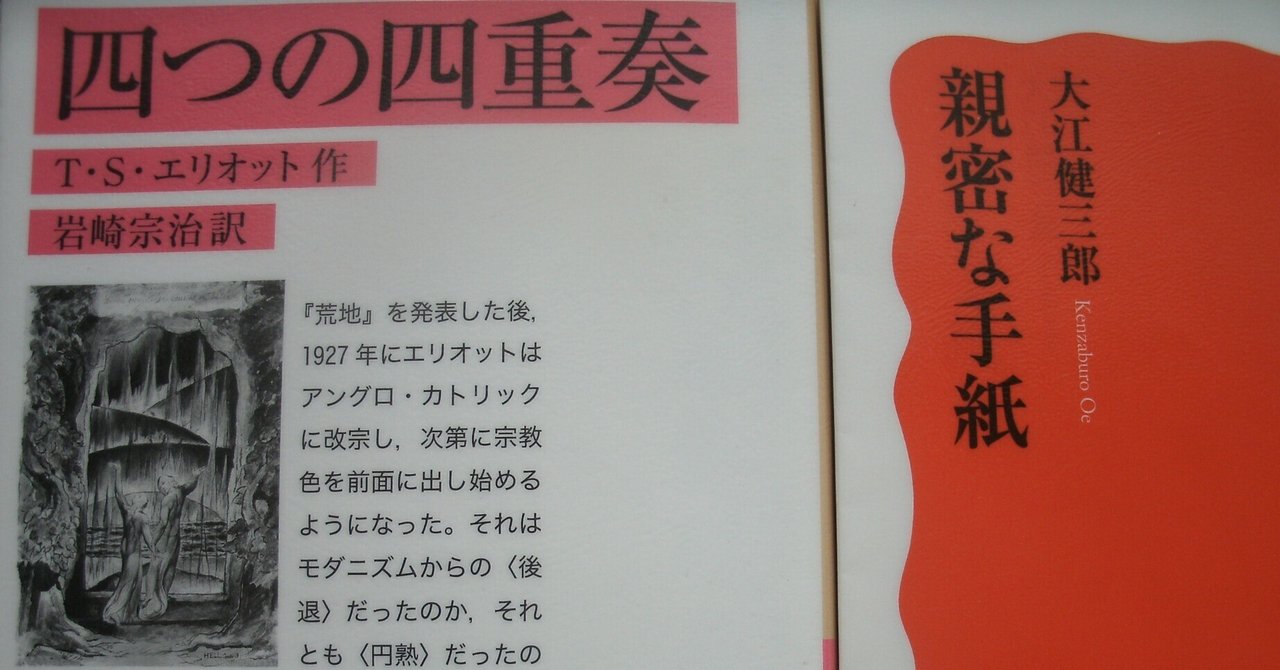 四つの四重奏
T・S・エリオット作
岩崎宗治訳
『荒地』を発表した後,
1927年にエリオットは
アングロ・カトリック
に改宗し,次第に宗教
色を前面に出し始める
ようになった。それは
モダニズムからの〈後
退〉だったのか,それ
とも〈円熟〉だったの
大江健三郎
Kenzaburo Oe
親密な手紙